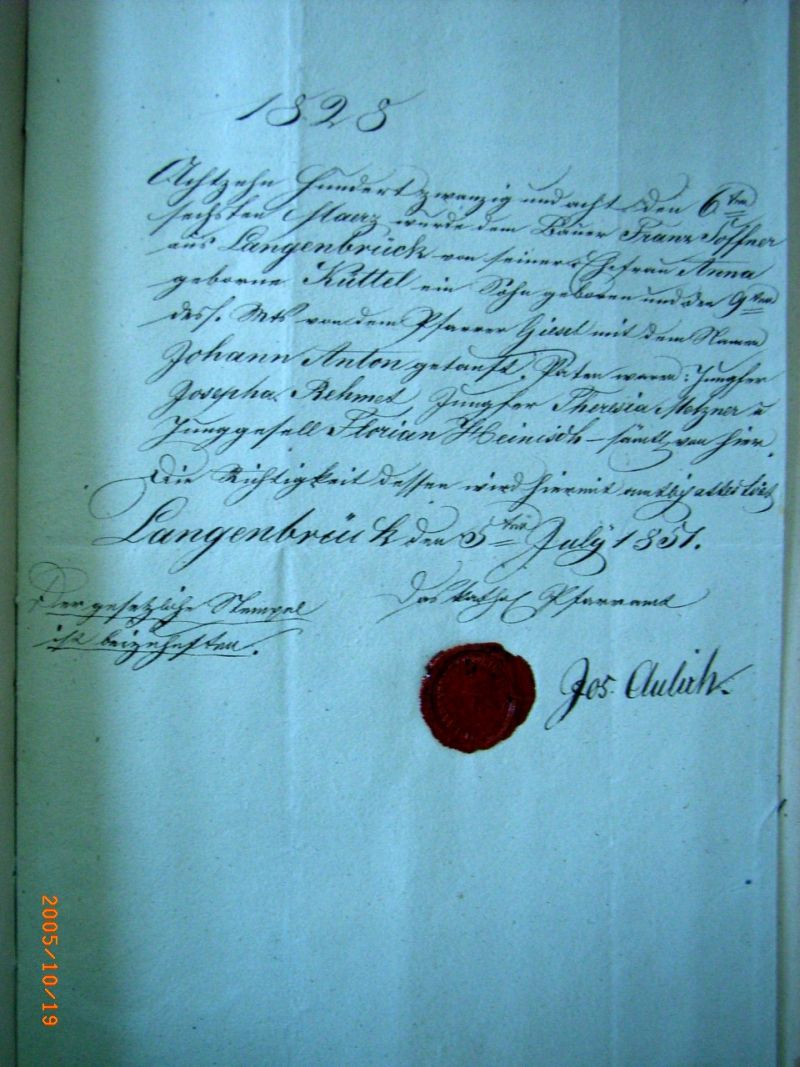 1828
Achtzehn Hundert zwanzig und acht den 6ten
sechsten Maerz wurde dem Bauer Franz Töffner
aus Langenbrück von seiner Ehefrau Anna
geborne Küttel ein Sohn geboren und den 9ten
dess. Mts von dem Pfarrer mit dem Namen
Johann Anton getauft. Paten waren: Jungfer
Josepha Rehmet, Jungfer Theresia Metzner u
Junggesell Florian Heinisch – sämtl. von hier.
Die Richtigkeit dessen wird hiermit amtlich attestirt
Langenbrück den 5ten July 1851.
Der gesetzliche Stempel
ist beizuheften.
Das kathol Pfarramt
Jos. Aulich.
2005/10/19